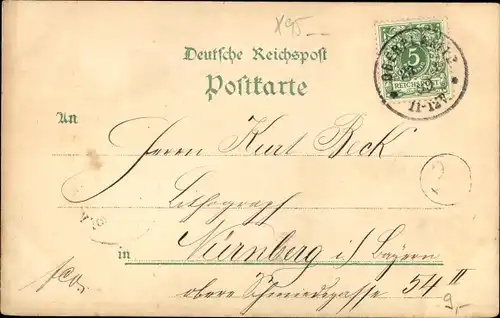 x95
Deutsche Reichspost
Postkarte
5
REICHSPOST
11-12V.
An
Herrn Kurt Beck
Lithograph
in Nürnberg i/ Bayern
obere Schmiedgasse 54 II
fco.
9,-